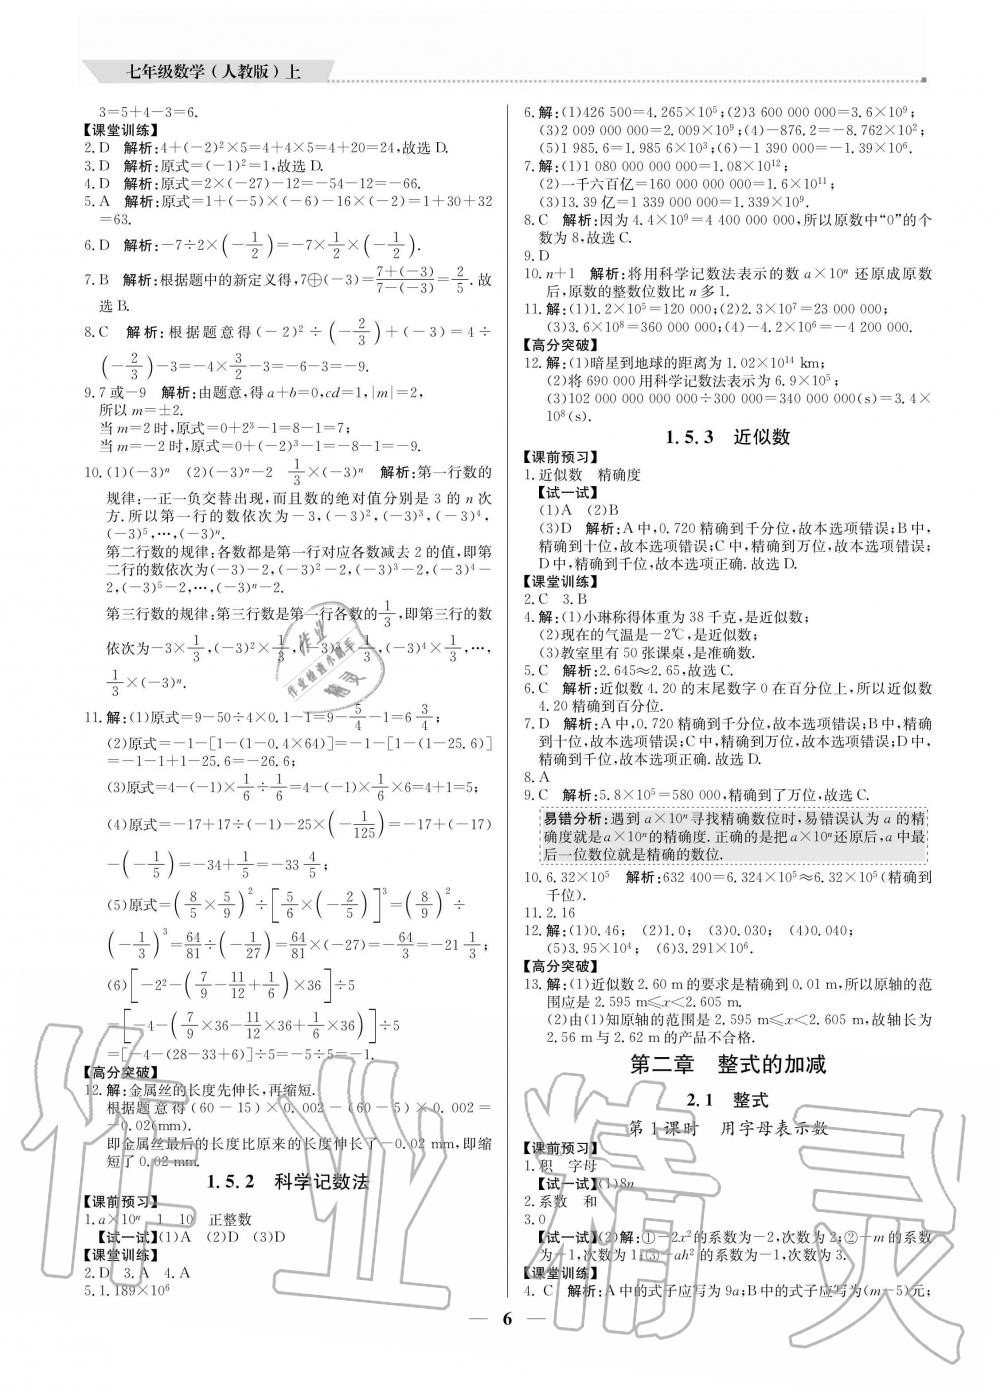 七年级数学(人教版)上
3=5+4-3=6.
【课堂训练】
2.D 解析:4+(-2)²×5=4+4×5=4+20=24,故选D.
3.D 解析:原式=(-1)²=1,故选D.
4.D 解析:原式=2×(-27)-12=-54-12=-66.
5.A 解析:原式=1+(-5)×(-6)-16×(-2)=1+30+32
=63.
6.D 解析:-7÷2×(-1/2)=-7×1/2×(-1/2).
7.B 解析:根据题中的新定义得,7⊕(-3)=7+(-3)/7-(-3)=2/5.故
选B.
8.C 解析:根据题意得(-2)²÷(-2/3)+(-3)=4÷
(-2/3)-3=-4×3/2-3=-6-3=-9.
9.7或-9 解析:由题意,得a+b=0,cd=1,|m|=2,
所以m=±2.
当m=2时,原式=0+2³-1=8-1=7;
当m=-2时,原式=0+(-2)³-1=-8-1=-9.
10.(1)(-3)ⁿ (2)(-3)ⁿ-2 1/3×(-3)ⁿ 解析:第一行数的
规律:一正一负交替出现,而且数的绝对值分别是3的n次
方.所以第一行的数依次为-3,(-3)²,(-3)³,(-3)⁴,
(-3)⁵,…,(-3)ⁿ.
第二行数的规律:各数都是第一行对应各数减去2的值,即第
二行的数依次为(-3)-2,(-3)²-2,(-3)³-2,(-3)⁴-
2,(-3)⁵-2,…,(-3)ⁿ-2.
第三行数的规律:第三行数是第一行各数的1/3,即第三行的数
依次为-3×1/3,(-3)²×1/3,(-3)³×1/3,(-3)⁴×1/3,…,
1/3×(-3)ⁿ.
11.解:(1)原式=9-50÷4×0.1-1=9-5/4-1=6 3/4;
(2)原式=-1-[1-(1-0.4×64)]=-1-[1-(1-25.6)]
=-1-1+1-25.6=-26.6;
(3)原式=4-(-1)×1/6÷1/6=4-(-1)×1/6×6=4+1=5;
(4)原式=-17+17÷(-1)-25×(-1/125)=-17+(-17)
-(-1/5)=-34+1/5=-33 4/5;
(5)原式=(8/5×5/9)²÷[5/6×(-2/5)]³=(8/9)²÷
(-1/3)³=64/81÷(-1/27)=64/81×(-27)=-64/3=-21 1/3;
(6)[-2²-(7/9-11/12+1/6)×36]÷5
=[-4-(7/9×36-11/12×36+1/6×36)]÷5
=[-4-(28-33+6)]÷5=-5÷5=-1.
【高分突破】
12.解:金属丝的长度先伸长,再缩短.
根据题意得(60-15)×0.002-(60-5)×0.002=
-0.02(mm).
即金属丝最后的长度比原来的长度伸长了-0.02 mm,即缩
短了0.02 mm.
1.5.2 科学记数法
【课前预习】
1.a×10ⁿ 1 10 正整数
【试一试】(1)A (2)D (3)D
【课堂训练】
2.D 3.A 4.A
5.1.189×10⁶
6.解:(1)426 500=4.265×10⁵;(2)3 600 000 000=3.6×10⁹;
(3)2 009 000 000=2.009×10⁹;(4)-876.2=-8.762×10²;
(5)1 985.6=1.985 6×10³;(6)-1 390 000=-1.39×10⁶.
7.解:(1)1 080 000 000 000=1.08×10¹²;
(2)一千六百亿=160 000 000 000=1.6×10¹¹;
(3)13.39亿=1 339 000 000=1.339×10⁹.
8.C 解析:因为4.4×10⁹=4 400 000 000,所以原数中“0”的个
数为8,故选C.
9.D
10.n+1 解析:将用科学记数法表示的数a×10ⁿ还原成原数
后,原数的整数位数比n多1.
11.解:(1)1.2×10⁵=120 000;(2)2.3×10⁷=23 000 000;
(3)3.6×10⁸=360 000 000;(4)-4.2×10⁶=-4 200 000.
【高分突破】
12.解:(1)暗星到地球的距离为1.02×10¹⁴ km;
(2)将690 000用科学记数法表示为6.9×10⁵;
(3)102 000 000 000÷300 000=340 000 000(s)=3.4×
10⁸(s).
1.5.3 近似数
【课前预习】
1.近似数 精确度
【试一试】
(1)A (2)B
(3)D 解析:A中,0.720精确到千分位,故本选项错误;B中,
精确到十位,故本选项错误;C中,精确到万位,故本选项错误;
D中,精确到千位,故本选项正确.故选D.
【课堂训练】
2.C 3.B
4.解:(1)小琳称得体重为38千克,是近似数;
(2)现在的气温是-2℃,是近似数;
(3)教室里有50张课桌,是准确数.
5.C 解析:2.645≈2.65,故选C.
6.C 解析:近似数4.20的末尾数字0在百分位上,所以近似数
4.20精确到百分位.
7.D 解析:A中,0.720精确到千分位,故本选项错误;B中,精确
到十位,故本选项错误;C中,精确到万位,故本选项错误;D中,
精确到千位,故本选项正确.故选D.
8.A
9.C 解析:5.8×10⁵=580 000,精确到了万位,故选C.
易错分析:遇到a×10ⁿ寻找精确数位时,易错误认为a的精
确度就是a×10ⁿ的精确度.正确的是把a×10ⁿ还原后,a中最
后一位数位就是精确的数位.
10.6.32×10⁵ 解析:632 400=6.324×10⁵≈6.32×10⁵(精确到
千位).
11.2.16
12.解:(1)0.46; (2)1.0; (3)0.030; (4)0.040;
(5)3.95×10⁴; (6)3.291×10⁶.
【高分突破】
13.解:(1)近似数2.60 m的要求是精确到0.01 m,所以原轴的范
围应是2.595 m≤x<2.605 m.
(2)由(1)知原轴的范围是2.595 m≤x<2.605 m,故轴长为
2.56 m与2.62 m的产品不合格.
第二章 整式的加减
2.1 整式
第1课时 用字母表示数
【课前预习】
1.积 字母
【试一试】(1)8n
2.系数 和
3.0
【试一试】(2)解:①-2x²的系数为-2,次数为2;②-m的系数
为-1,次数为1;③-ah²的系数为-1,次数为3.
【课堂训练】
4.C 解析:A中的式子应写为9a;B中的式子应写为(m-5)元;
6
作业
作业检查小帮手
精灵
作业精灵